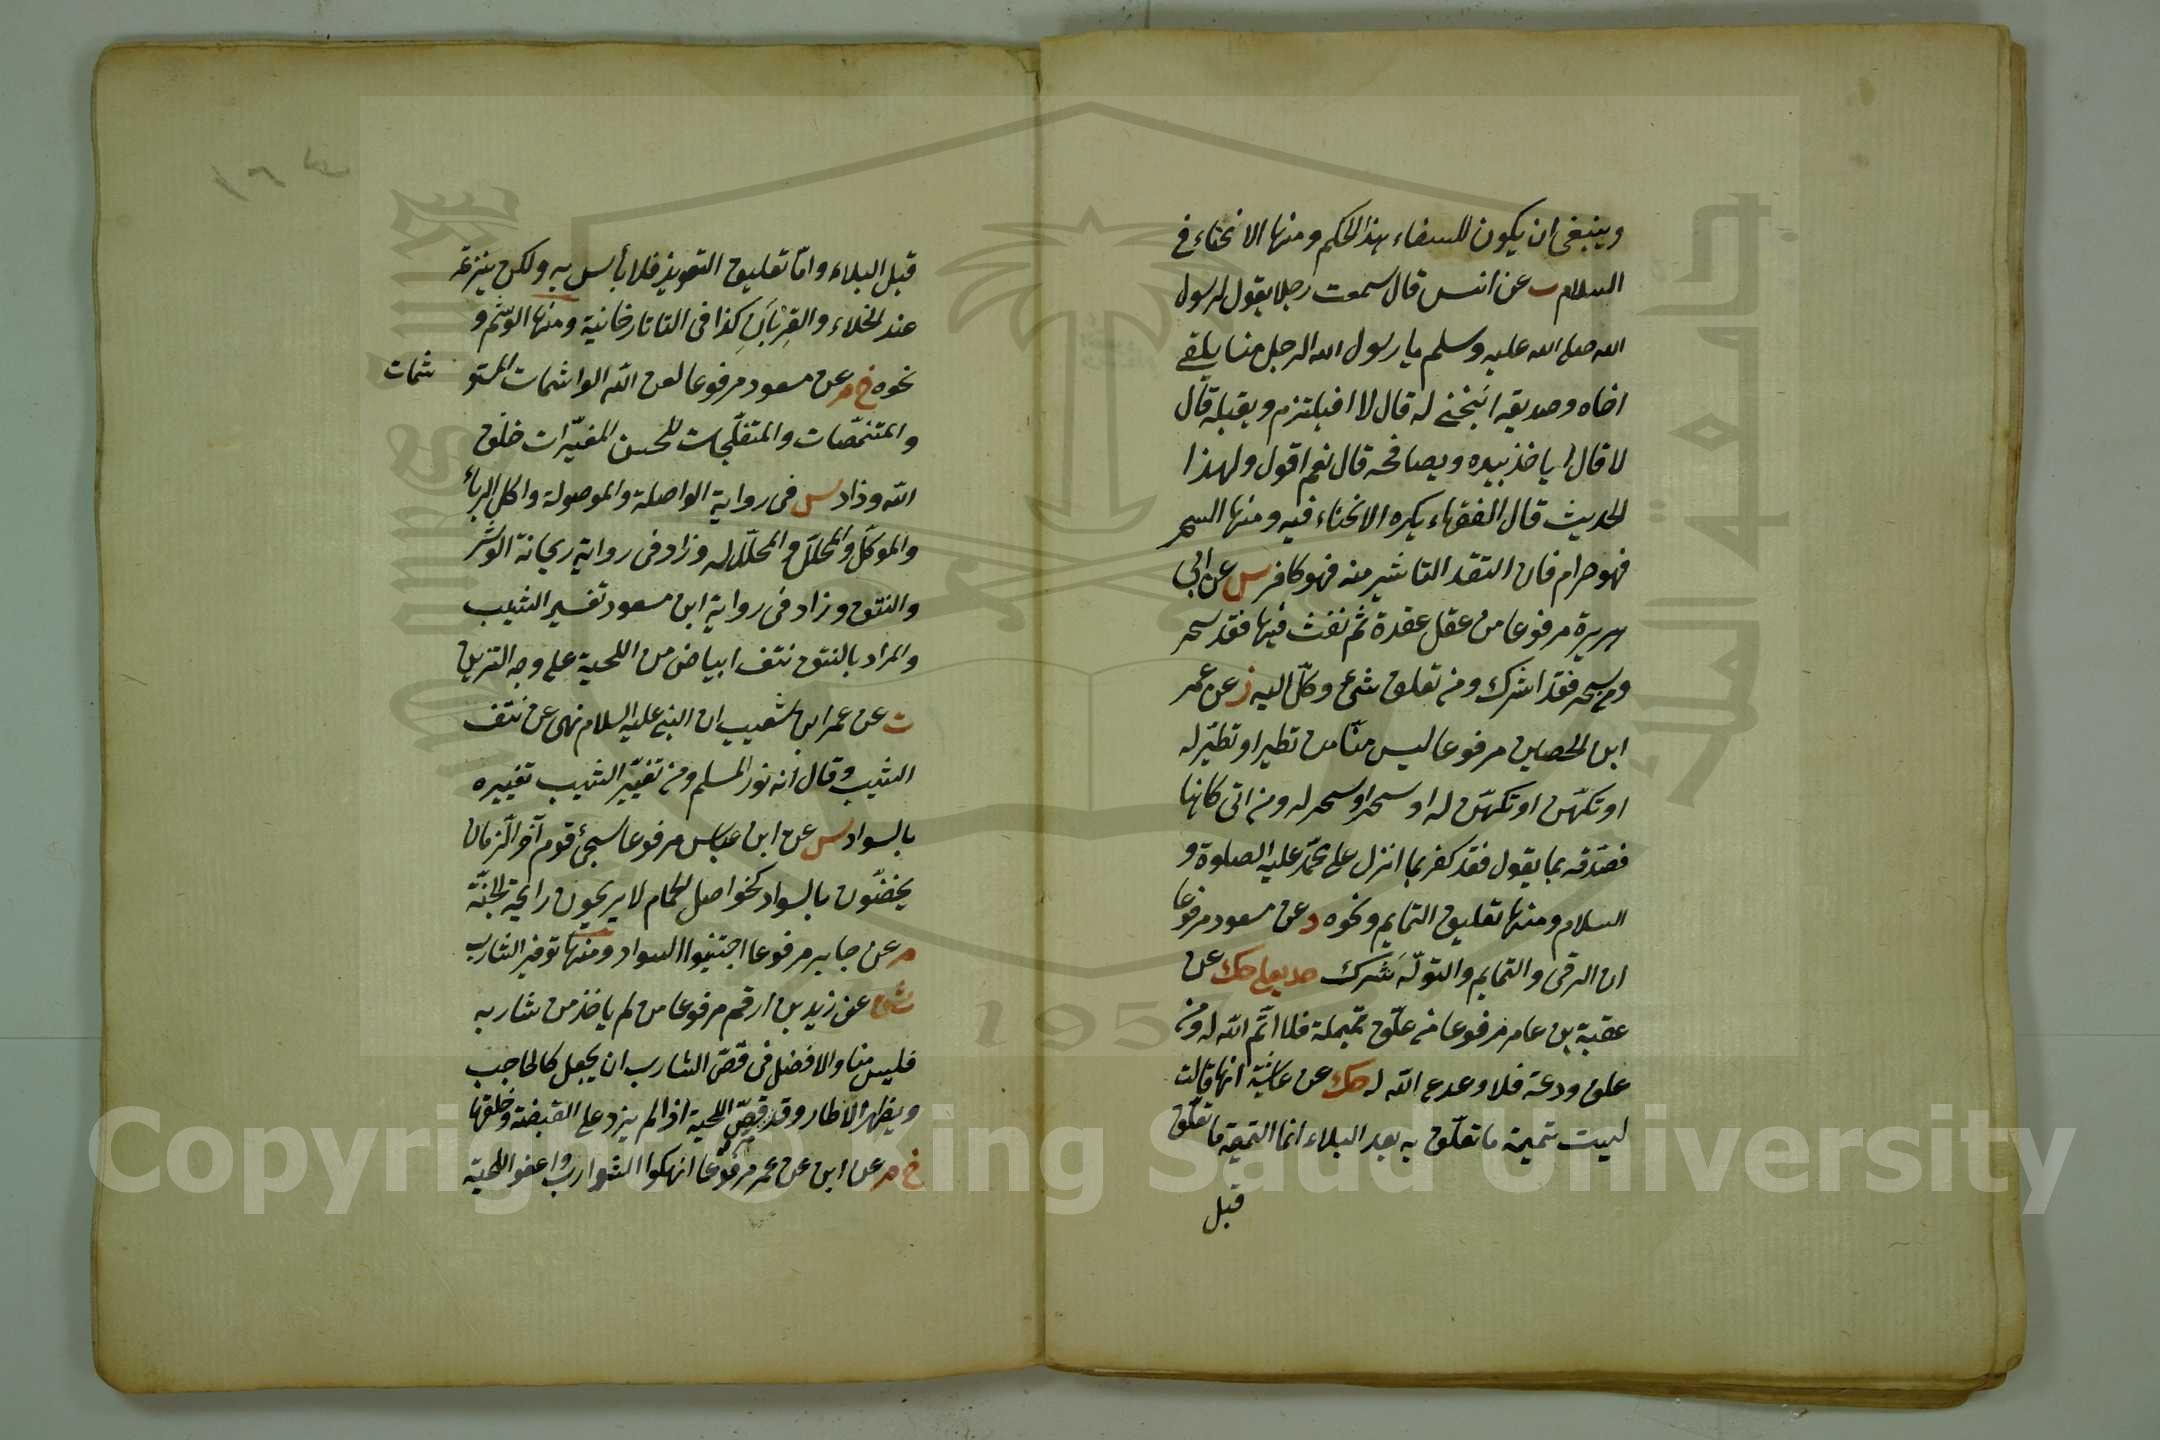 وينبغى ان يكون للسفاء بهذا الحكم ومنها الانحناء فى
السلام ت عن انس قال سمعت رجلا يقول لرسول
الله صلى الله عليه وسلم يا رسول الله الرجل منا يلقى
اخاه وصديقه اينحنى له قال لا افيلتزم ويقبله قال
لا قال ا ياخذ بيده ويصافحه قال نعم اقول ولهذا
الحديث قال الفقهاء يكره الانحناء فيه ومنها السحر
فهو حرام فان اعتقد التاشير منه فهو كافر س عن ابى
هريرة مرفوعا من عقل عقدة ثم نفث فيها فقد سحر
ومن سحر فقد اشرك ومن تعلق شئ وكل اليه ز عن عمر
ابن الحصين مرفوعا ليس منا من تطير او تطير له
او تكهن او تكهن له او سحر او سحر له ومن اتى كاهنا
فصدقه بما يقول فقد كفر بما انزل على محمد عليه الصلوة و
السلام ومنها تعليق التمايم ونحوه د عن مسعود مرفوعا
ان الرقى والتمايم والتولة شرك حد يعلى حك عن
عقبة بن عامر مرفوعا من علق تميملة فلا اتم الله له ومن
علق ودعة فلا وعدع الله له حك عن عائشة انها قالت
ليست تميمة ما تعلق به بعد البلاء انما التميمة ما تعلق
قبل
قبل البلاء واما تعليق التعويذ فلا بأس به ولكن ينزعه
عند الخلاء والقربان كذا فى التاتارخانية ومنها الوشم و
نحوه خ م عن مسعود مرفوعا لعن الله الواشمات المستو
شمات
والمتنمصات والمتفلجات للحسن المغيرات خلق
الله وزاد س فى رواية الواصلة والموصولة واكل الربا
والموكل والمحلل والمحلل له وزاد فى رواية ريحانة الوشر
والنتف وزاد فى رواية ابن مسعود تغيير الشيب
والمراد بالنتف نتف ابياض من اللحية على وجه التزيين
ت عن عمر ابن شعيب ان النبى عليه السلام نهى عن نتف
الشيب وقال انه نور المسلم ومن تغير الشيب تغييره
بالسواد س عن ابن عباس مرفوعا سيجئ قوم آخر الزمان
يخضبون بالسواد كحواصل الحمام لا يريحون رايحة الجنة
م عن جابر مرفوعا اجتنبوا السواد ومنها توفير الشارب
عن زيد بن ارقم مرفوعا من لم ياخذ من شاربه
فليس منا والافضل فى قص الشارب ان يجعل كالحاجب
ويظهر الاطار وقد قص اللحية اذا لم يزد على القبضة وحلقها
خ م عن ابن عن عمر مرفوعا انهكوا الشوارب واعفوا اللحية
جامعة الملك سعود
King Saud University
1957
Copyright © King Saud University